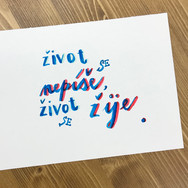 život SE
nepíše,
život SE žije.